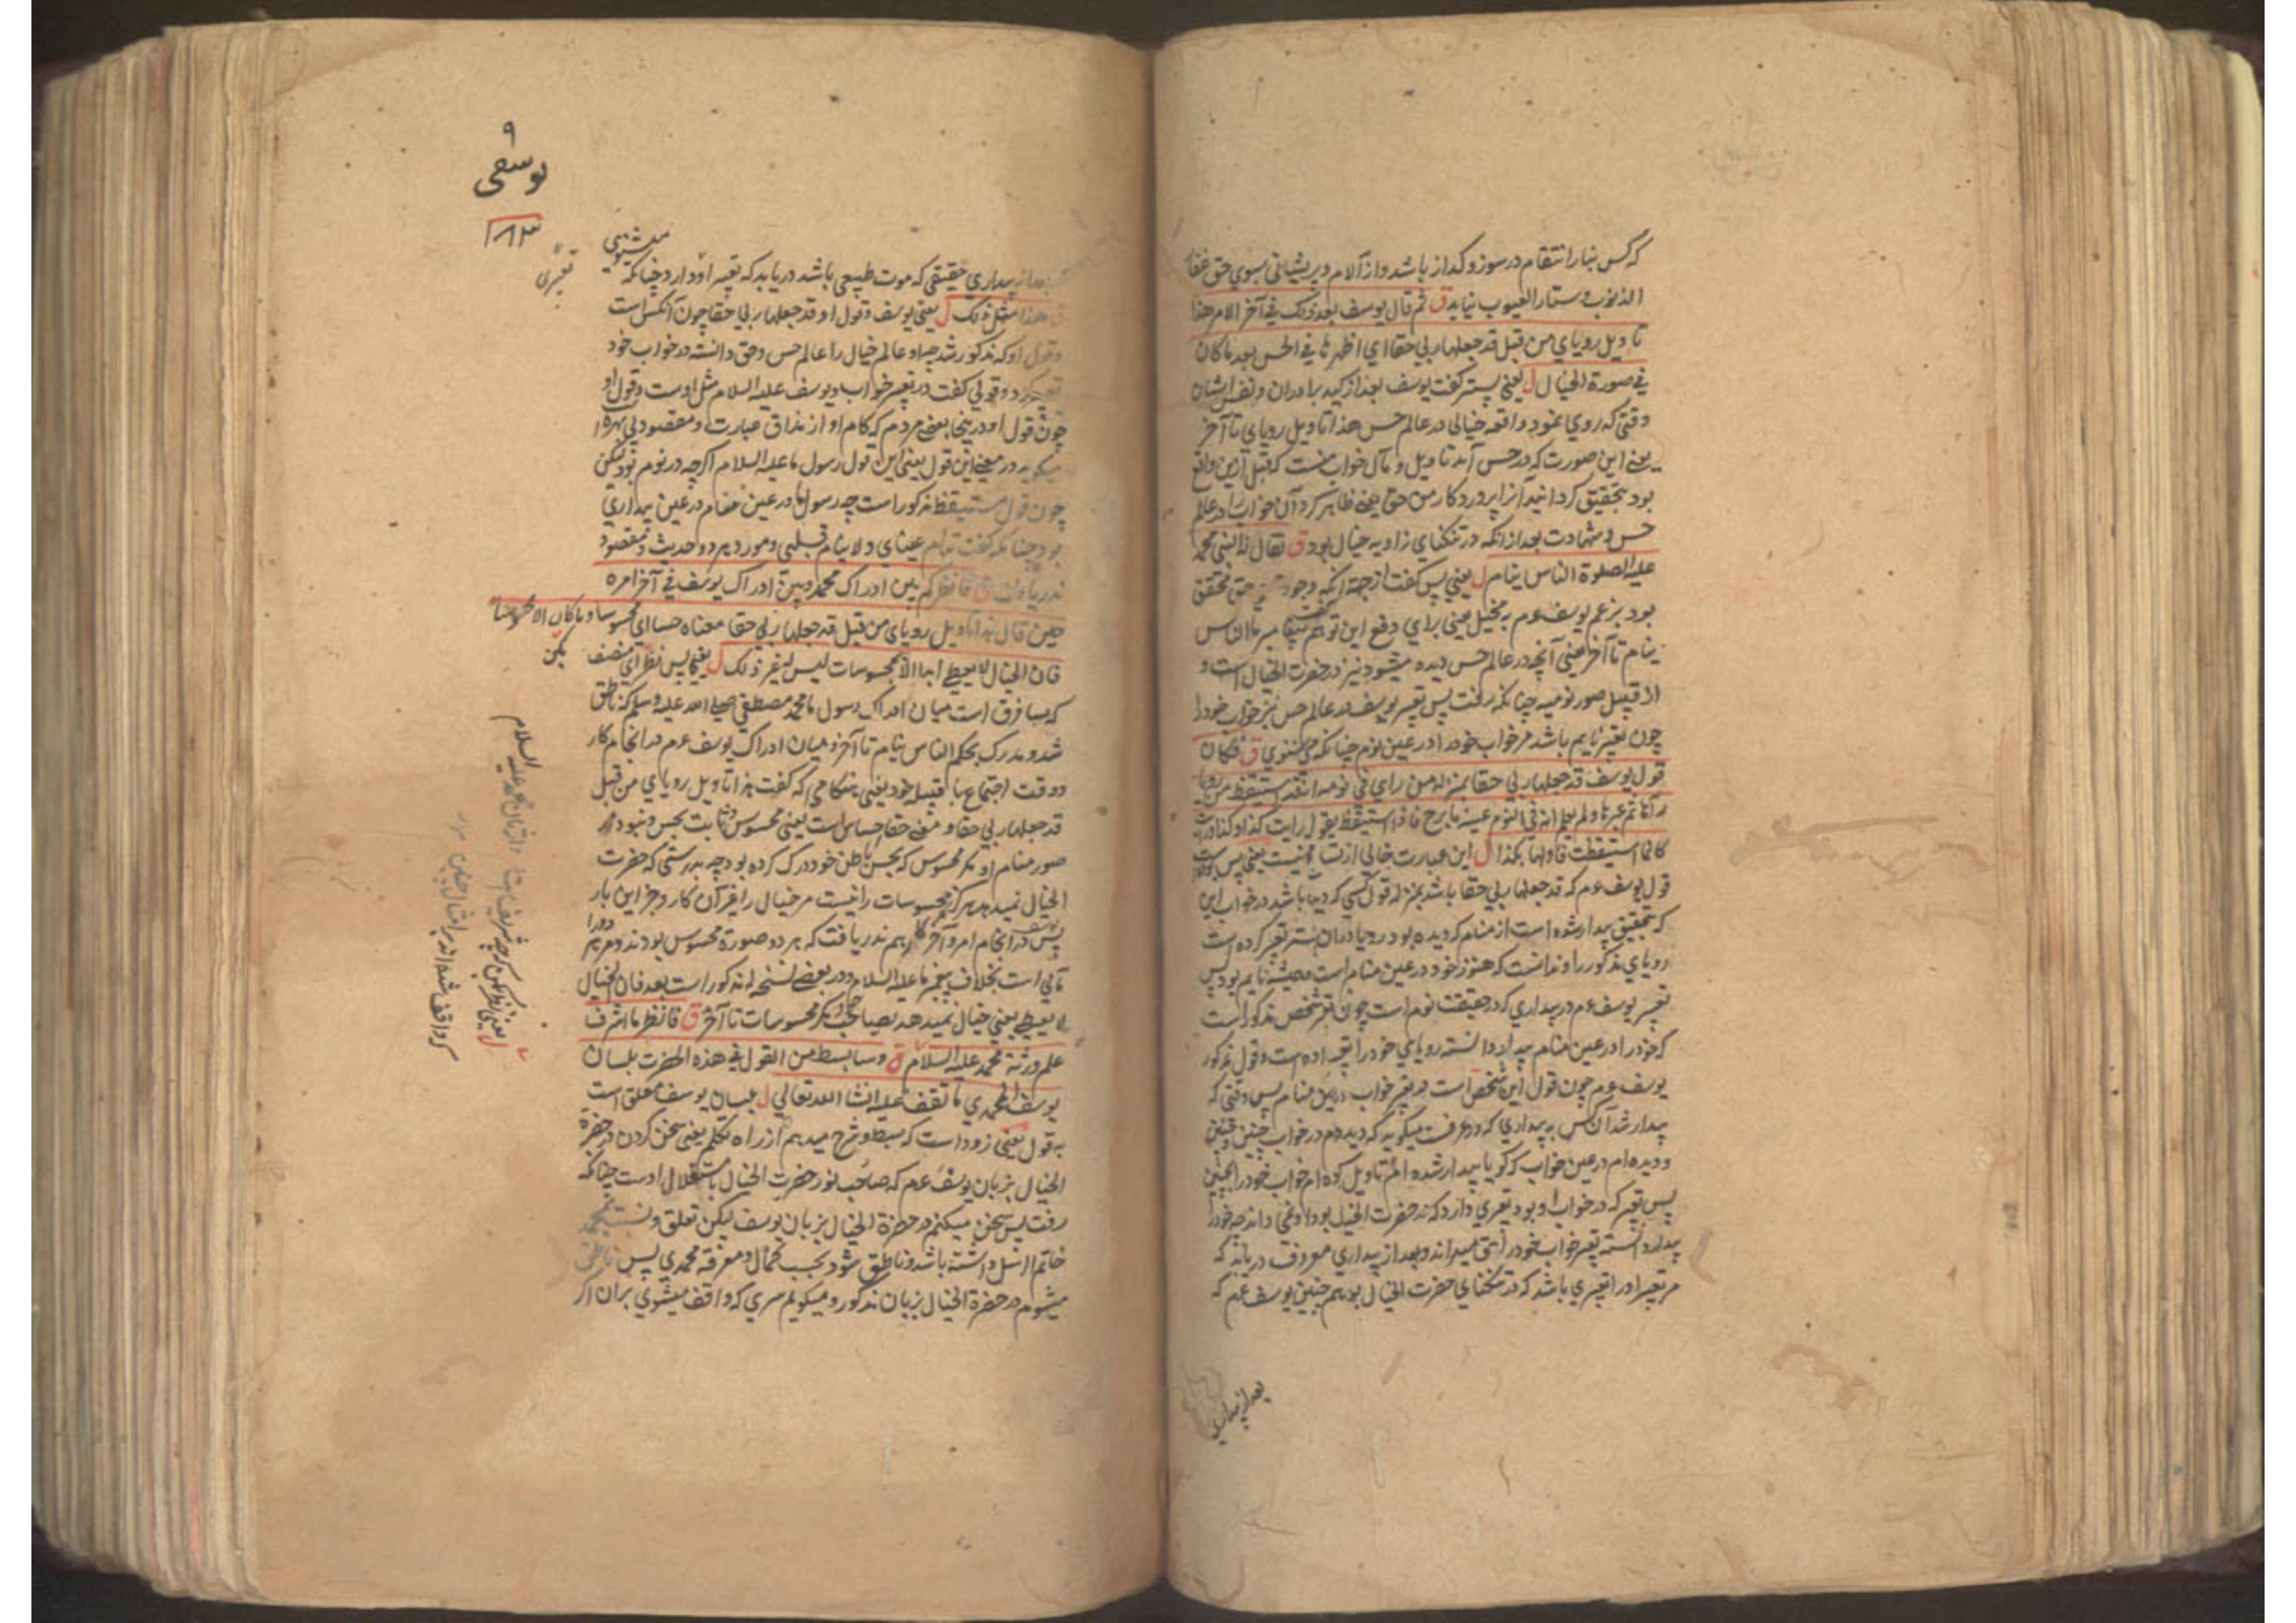 که کس بنار انتقام در سوز و کداز باشد و از آلام و پریشانی بسوی حق غفار
الذنوب و ستار العیوب نیاید ق ثم قال یوسف بعد ذلک فی آخر الامر هذا
تاویل رویای من قبل قد جعلها ربی حقا ای اظهرها فی الحس بعد ما کان
فی صورة الخیال ل یعنی پستر کفت یوسف بعد از کید برادران و
وقتی که روی نمود واقعه خیالی در عالم حس هذا تاویل رویای تا آخر
یعنی این صورت که در حس آمد تاویل و مآل خواب منست که قبل ازین واقع
بود بتحقیق کردانید آنرا پروردکار من حق یعنی ظاهر کرد آن خواب را در عالم
حس و شهادت بعد از انکه در تنکنای زاویه خیال بود ق فقال له النبی محمد
علیه الصلوة الناس ینام ل یعنی پس کفت از جهة انکه وجود حق محقق
بود بزعم یوسف عم یعنی برای دفع این توهم کفت پیغامبر ما الناس
ینام تا آخر یعنی آنچه در عالم حس دیده میشود نیز در حضرت الخیال است و
از قبیل صور نومیه چنانکه رفت پس تعبیر یوسف در عالم حس نیز خواب خود را
چون تعبیر نایم باشد مر خواب خود را در عین نوم چنانکه می شنوی ق فکان
قول یوسف قد جعلها ربی حقا بمنزلة من رای فی نومه انه قد استیقظ من رویا
رآها ثم عبرها و لم یعلم انه فی النوم عینه ما برح فاذا استیقظ یقول رایت کذا و کذا و رایت
کانی استیقظت فاولها بکذا ل این عبارت خالی از نیست یعنی پس
قول یوسف عم که قد جعلها ربی حقا باشد بمنزله قول کسی که دیده باشد در خواب این
که بتحقیق بیدار شده است از منام که دیده بود رویا در آن پستر تعبیر کرده است
رویای مذکور را و ندانست که هنوز خود در عین منام است همیشه نایم بود پس
تعبیر یوسف عم در بیداری که در حقیقت نوم است چون تعبیر شخص مذکور است
که خود را در عین منام بیدار دانسته رویای خود را تعبیر داده است و قول مذکور
یوسف عم چون قول این شخص است در تعبیر خواب در عین منام پس وقتی که
بیدار شد آن کس به بیداری که در عرفست میکوید که دیدم در خواب چنین و چنین
و دیده ام در عین خواب که کویا بیدار شده ام تاویل کرده ام خواب خود را بچنین
پس تعبیر که در خواب او بود تعبری دارد که در حضرت الخیال بود او نمی داند چه خود را
بیدار دانسته تعبیر خواب خود را حق میداند و بعد از بیداری معروف دریابد که
مر تعبیر او را تعبیری باشد که در تنکنای حضرت الخیال بود همچنین یوسف عم که
بعد از بیداری
۹
یوسفی
۸۳
میشنوی
بعد از بیداری حقیقی که موت طبیعی باشد دریابد که تعبیر او دارد چنانکه
تعبیری
ق هذا مثل ذلک ل یعنی یوسف و قول او قد جعلها ربی حقا چون آنکس است
و قول او که مذکور شد چه او عالم خیال را عالم حس و حق دانسته در خواب خود
تعبیر کرد و قولی کفت در تعبیر خواب و یوسف علیه السلام مثل اوست و قول او
چون قول او درینجا بعضی مردم که کام او از مذاق عبارت و مقصود بی بهره
میکوید در معنی این قول یعنی این قول رسول ما علیه السلام اکرچه در نوم بود لیکن
چون قول مستیقظ مذکور است چه رسول ما در عین منام در عین بیداری
بود چنانکه کفت تنام عینای و لا ینام قلبی و مورد هر دو حدیث و مقصود
ندریافت ق فانظر کم بین ادراک محمد و بین ادراک یوسف فی آخر امره
حین قال هذا تاویل رویای من قبل قد جعلها ربی حقا معناه حسا ای محسوسا و ما کان الا محسوسا
فان الخیال لا یعطی ابدا الا المحسوسات لیس له غیر ذلک ل یعنی پس نظر ای منصف
بکن
که بسا فرق است میان ادراک رسول ما محمد مصطفی صلی الله علیه و سلم که ناطق
شد و مدرک بحکم الناس ینام تا آخر و میان ادراک یوسف عم در انجام کار
و وقت اجتماع با قبیله خود یعنی هنکامی که کفت هذا تاویل رویای من قبل
قد جعلها ربی حقا و معنی حقا حسا است یعنی محسوس و ثابت بحس و نبود
صور منام او مکر محسوس که بحس باطن خود درک کرده بود چه بدرستی که حضرت
الخیال نمیدهد هرکز مکر محسوسات را نیست مر خیال را غیر آن کار و جز این بار
پس یوسف در انجام امر و آخر کار هم ندریافت که هر دو صورة محسوس بودند و مر هر دو را
مآلی است بخلاف پیغمبر ما علیه السلام و در بعضی نسخه له مذکور است بعد فان الخیال
لا یعطی یعنی خیال نمیدهد بصاحب خود مکر محسوسات تا آخر ق فانظر ما اشرف
علم ورثة محمد علیه السلام ق و سابسط من القول فی هذه الحضرت بلسان
یوسف المحمدی ما تقف علیه انشا الله تعالی ل بلسان یوسف معلق است
به قول یعنی زود است که بسط و شرح میدهم از راه تکلم یعنی سخن کردن در حضرة
الخیال بزبان یوسف عم که صاحب نور حضرت الخیال باستقلال اوست چنانکه
رفت پس سخن میکنم در حضرة الخیال بزبان یوسف لیکن تعلق و نسبت بمحمد
خاتم الرسل داشته باشد و ناطق شود بحسب کمال و معرفة محمدی پس ناطق
میشوم در حضرة الخیال بزبان مذکور و میکویم سری که واقف میشوی بران اکر
ل یعنی نظر بکن که چه شریف است وارثان محمد علیه السلام
که واقف شده اند بر امثال چنین